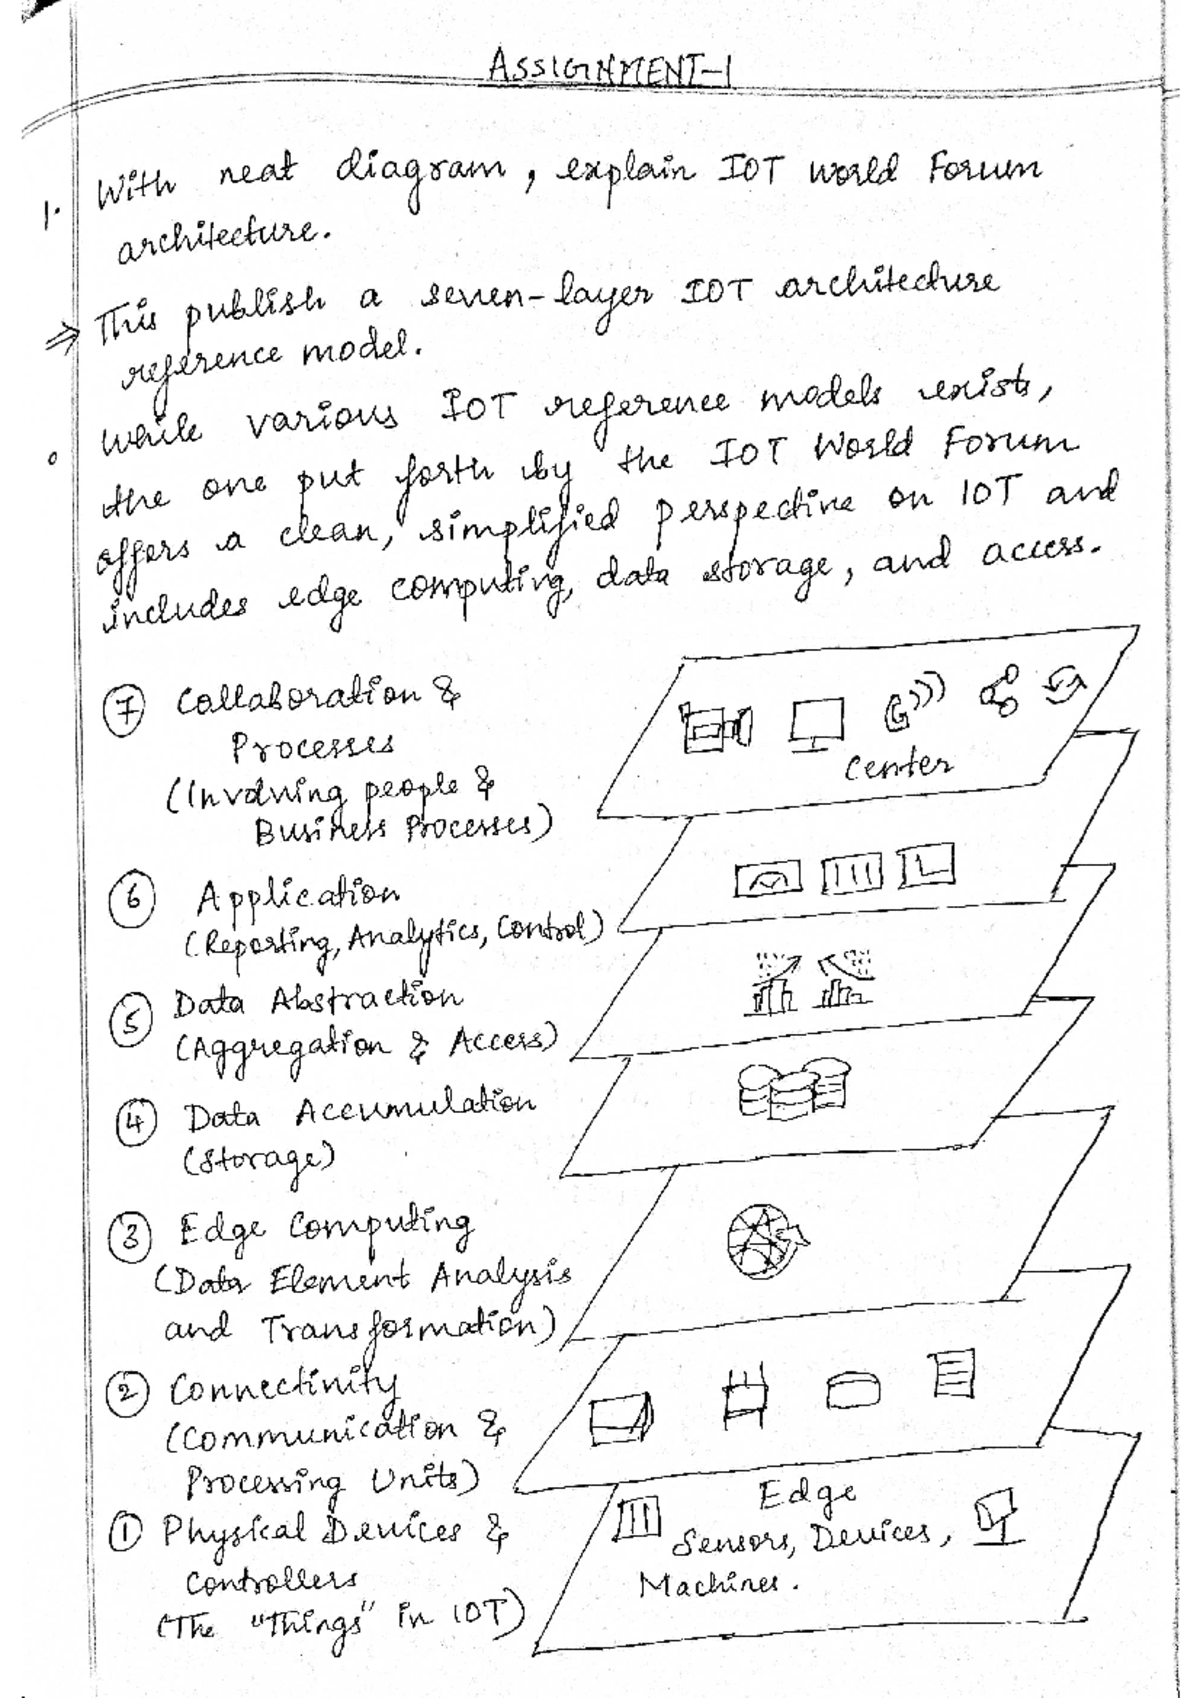 ASSIGNMENT-1
1. With neat diagram, explain IOT world Forum
architecture.
⇒ This publish a seven-layer IOT architecture
reference model.
∘ While various IOT reference models exists,
the one put forth by the IOT World Forum
offers a clean, simplified perspective on IOT and
includes edge computing, data storage, and access.
7 Collaboration &
Processes
(Involving people &
Business Processes)
Center
6 Application
(Reporting, Analytics, Control)
5 Data Abstraction
(Aggregation & Access)
4 Data Accumulation
(Storage)
3 Edge Computing
(Data Element Analysis
and Transformation)
2 Connectivity
(Communication &
Processing Units)
1 Physical Devices &
Controllers
(The "Things" in IOT)
Edge
Sensors, Devices,
Machines.